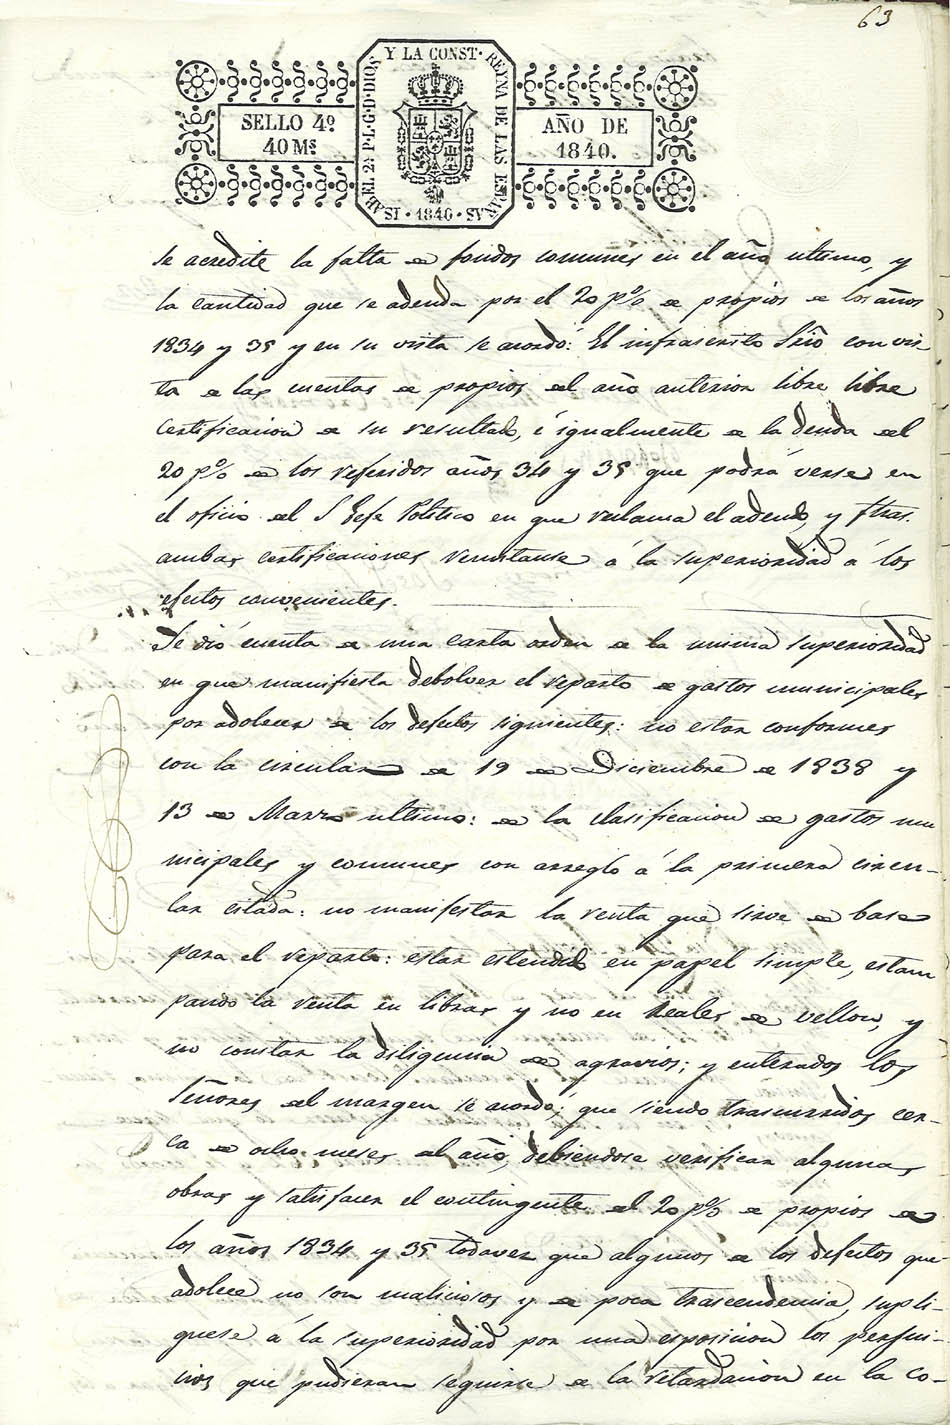 63
ISABEL 2ª P·L·G·D·DIOS Y LA CONST· REYNA DE LAS ESPAÑAS · 1840 ·
SELLO 4º
40 Mˢ
AÑO DE
1840.
se acredite la falta de fondos comunes en el año ultimo, y
la cantidad que se adeuda por el 20 pº/o de propios de los años
1834 y 35 y en su vista se acordó: El infrascrito Srio con vis-
ta de las cuentas de propios del año anterior libre libre
Certificacion de su resultado, é igualmente de la deuda del
20 pº/o de los referidos años 34 y 35 que podrá verse en
el oficio del S Gefe Politico en que reclama el adeudo, y
ambas certificaciones remitanse á la superioridad á los
efectos convenientes.
Se dió cuenta de una carta orden de la misma superioridad
en que manifiesta debolver el reparto de gastos municipales
por adolecer de los defectos siguientes: no estar conformes
con la circular de 19 de Diciembre de 1838 y
13 de Marzo ultimo: de la clasificacion de gastos mu
nicipales y comunes con arreglo á la primera circu-
lar citada: no manifestar la renta que sirve de base
para el reparto: estar estendido en papel simple, estam
pando la renta en libras y no en Reales de vellon, y
no constar la diligencia de agravios; y enterados los
Señores del margen se acordó; que siendo trascurridos cer-
ca de ocho meses del año, debiendose verificar algunas
obras y satisfacer el contingente del 20 pº/o de propios de
los años 1834 y 35 todavez que algunos de los defectos que
adolece no son maliciosos y de poca trascendencia, supli-
quese á la superioridad por una esposicion los perjui-
cios que pudieran seguirse de la retardacion en la co-